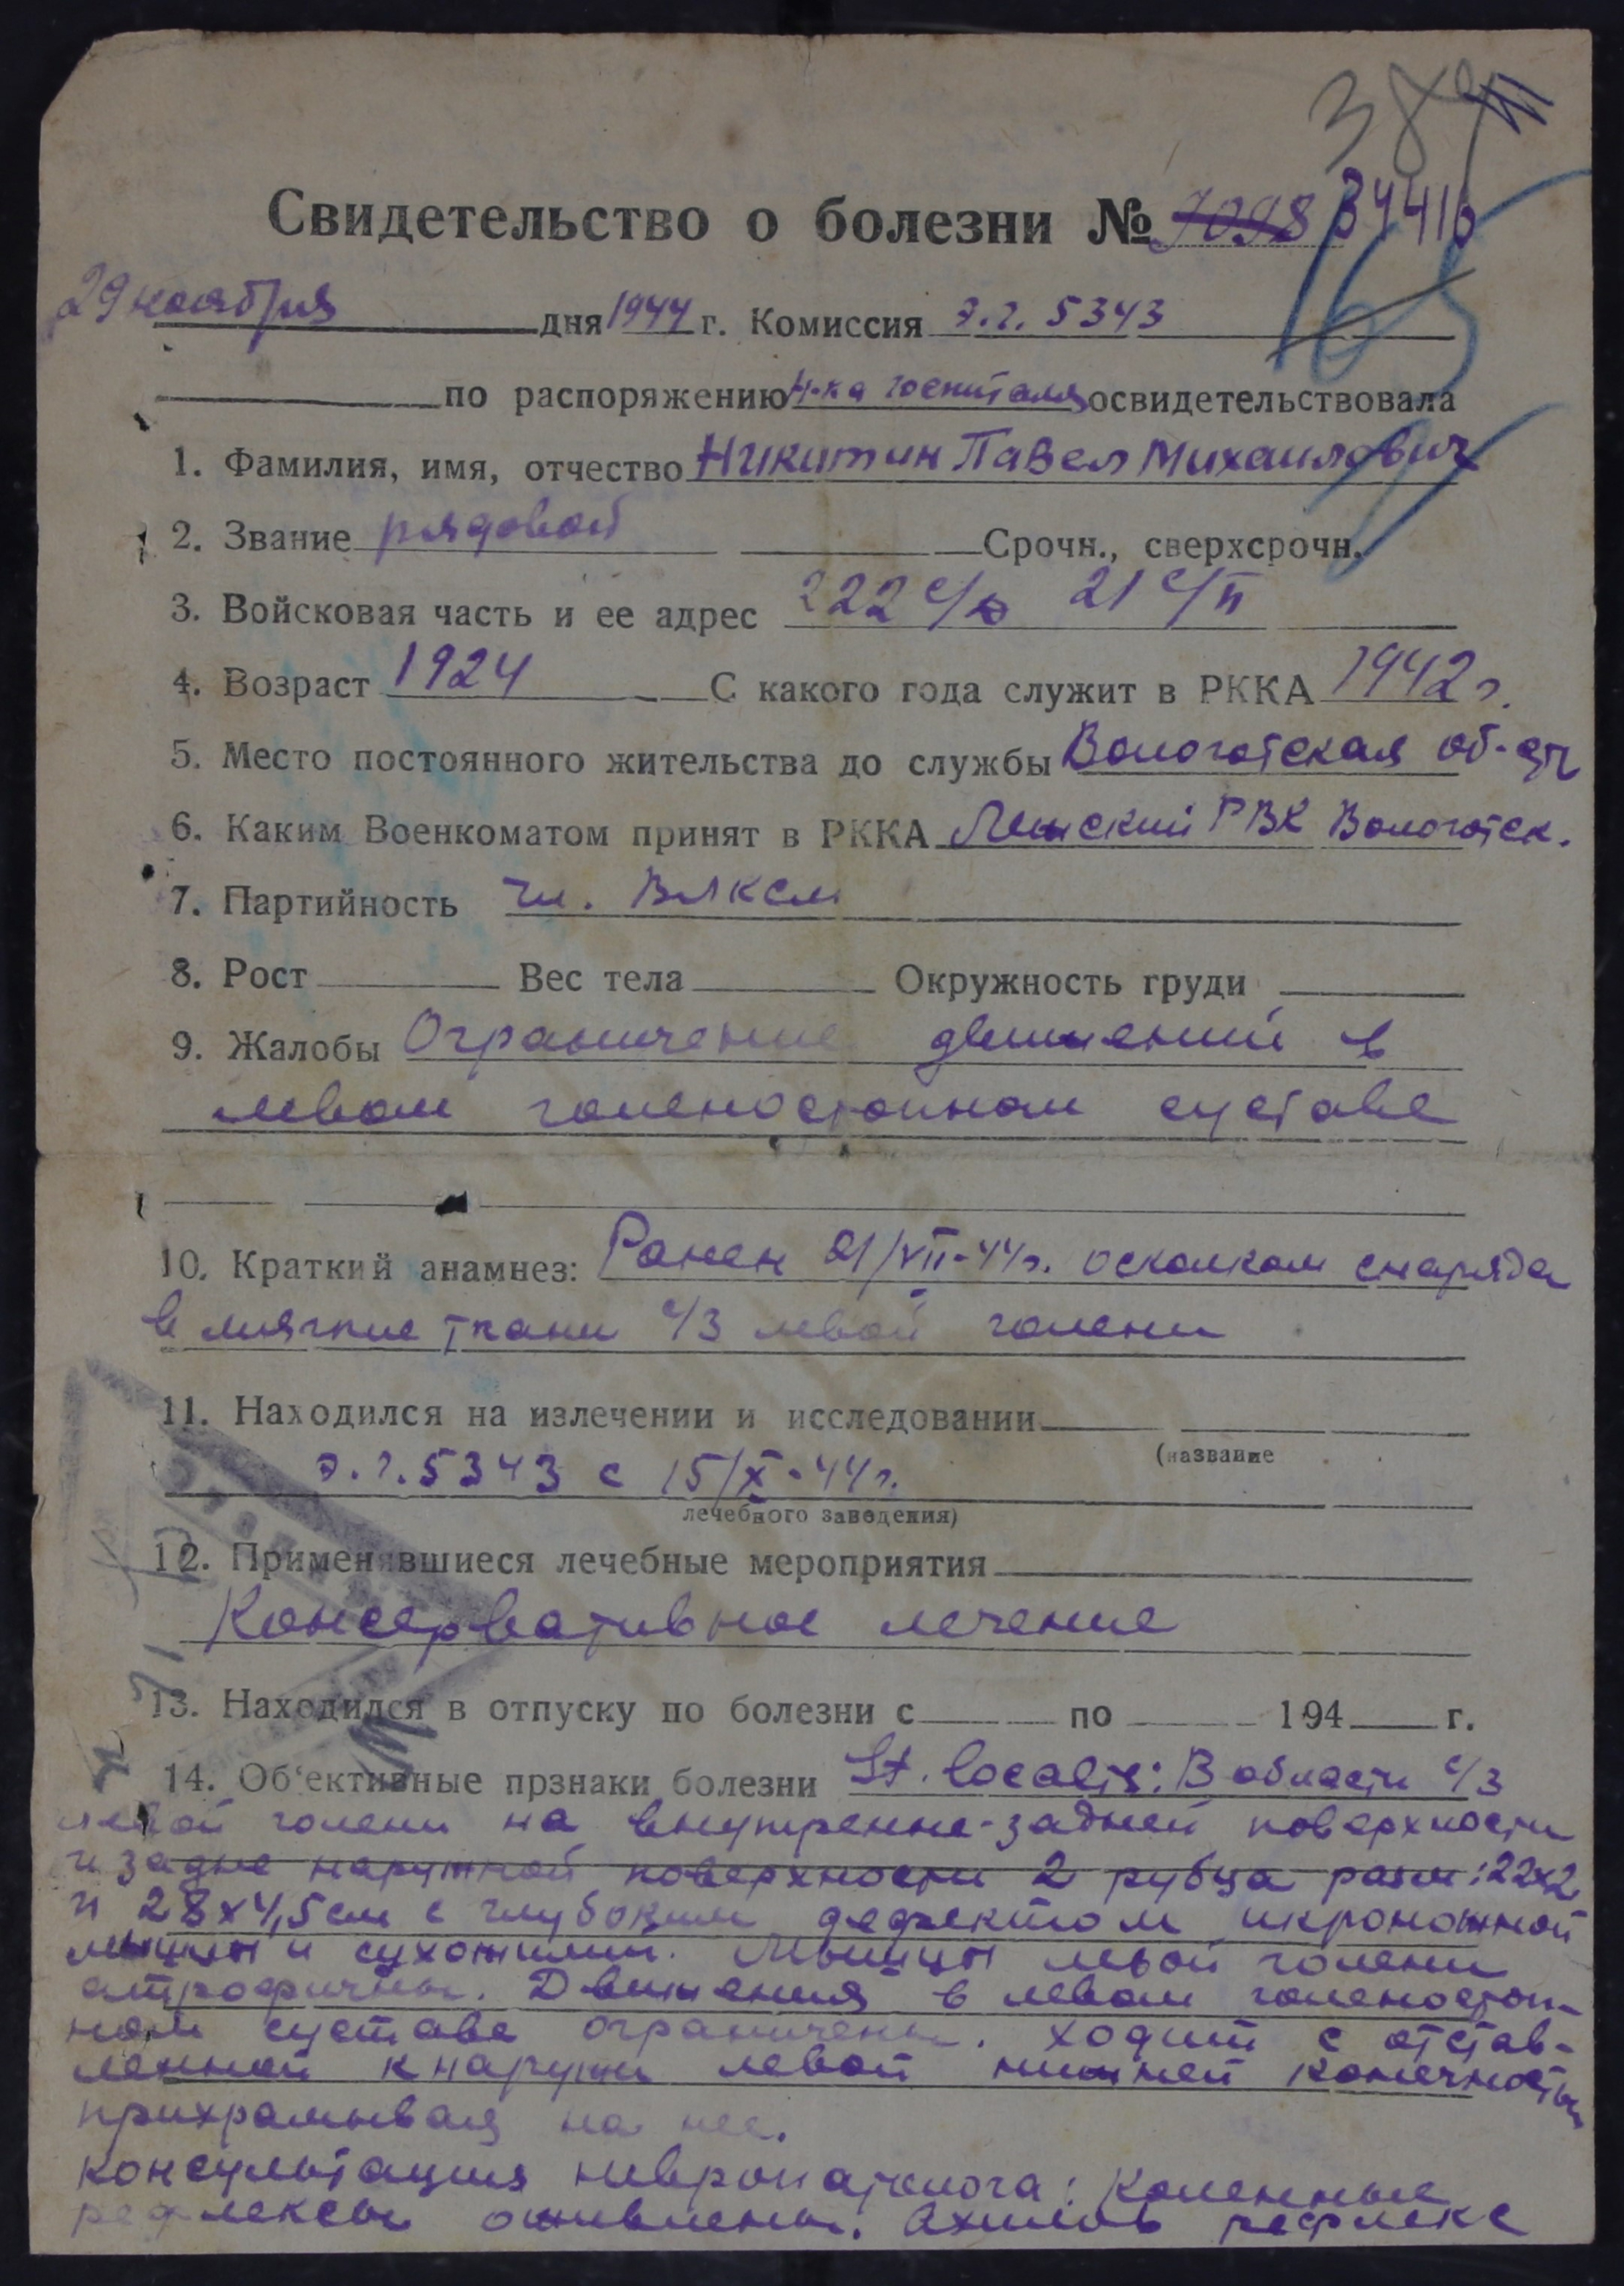 Свидетельство о болезни № 7098 34416
29 ноября дня 1944 г. Комиссия э.г. 5343
по распоряжению н-ка госпиталя освидетельствовала
1. Фамилия, имя, отчество Никитин Павел Михайлович
2. Звание рядовой Срочн., сверхсрочн.
3. Войсковая часть и ее адрес 222 с/д 21 с/п
4. Возраст 1924 С какого года служит в РККА 1942 г.
5. Место постоянного жительства до службы Вологотская об-сть
6. Каким Военкоматом принят в РККА РВК Вологотск.
7. Партийность чл. ВЛКСМ
8. Рост Вес тела Окружность груди
9. Жалобы Ограничение движений в
левом голеностопном суставе
10. Краткий анамнез: Ранен 21/VII-44г. осколком снаряда
в мягкие ткани с/3 левой голени
11. Находился на излечении и исследовании
(название
э.г. 5343 с 15/X-44г.
лечебного заведения)
12. Применявшиеся лечебные мероприятия
Консервативное лечение
13. Находился в отпуску по болезни с по 194 г.
14. Об'ективные прзнаки болезни St. localis: В области с/3
левой голени на внутренне-задней поверхности
и задне наружной поверхности 2 рубца разм: 22х2
и 28х4,5 см с глубоким дефектом икроножной
мышцы и сухожилий. Мышцы левой голени
атрофичны. Движения в левом голеностоп-
ном суставе ограничены. Ходит с отстав-
ленной кнаружи левой нижней конечностью
прихрамывая на нее.
Консультация невропатолога: Коленные
рефлексы оживлены. Ахиллов рефлекс